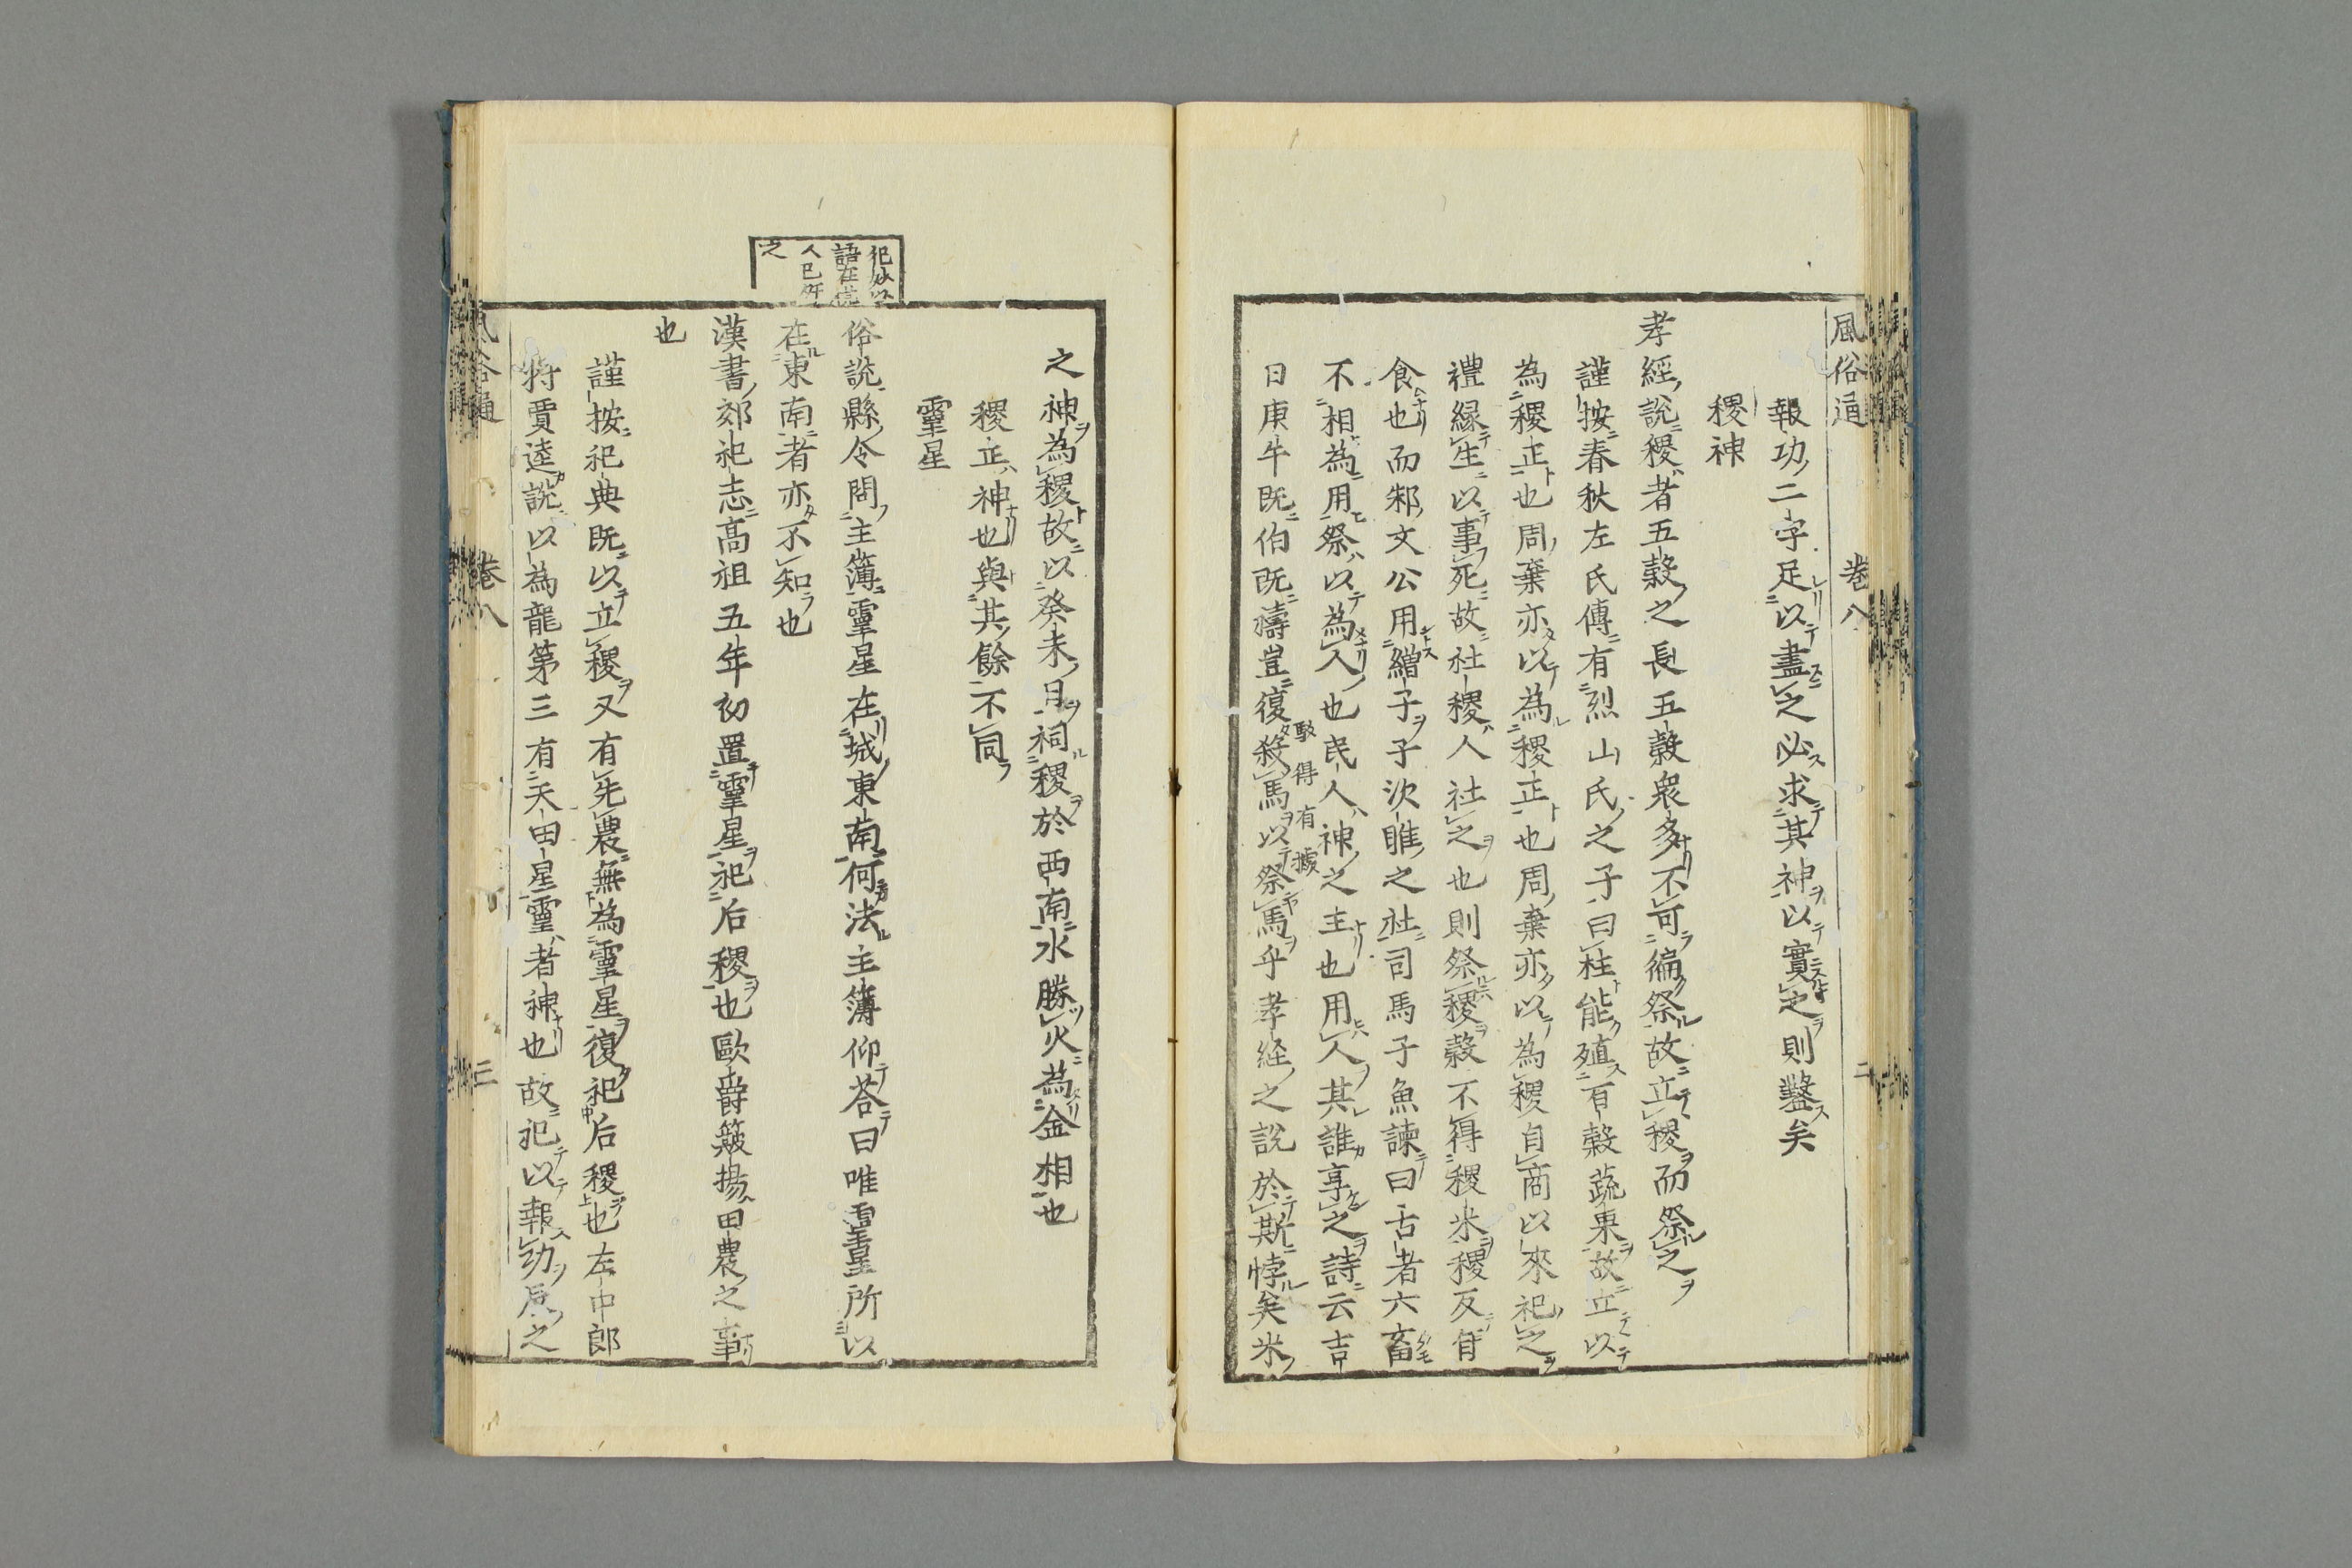 風俗通　卷八　二
報功二字足以盡之必求其神以實之則鑿矣
稷神
孝經說稷者五穀之長五穀衆多不可徧祭故立稷而祭之
謹按春秋左氏傳有烈山氏之子曰柱能殖百穀蔬果故立以
為稷正也周棄亦以為稷正也周棄亦以為稷自商以來祀之
禮緣生以事死故社稷人社之也則祭稷穀不得稷米稷反自
食也而邾文公用繒子子次睢之社司馬子魚諫曰古者六畜
不相為用祭以為人也民人神之主也用人其誰享之詩云吉
日庚午既伯既禱豈復殺馬以祭馬乎孝経之說於斯悖矣米
駁得有據
之神為稷故以癸未日祠稷於西南水勝火為金相也
稷正神也與其餘不同
靈星
俗說縣令問主簿靈星在城東南何法主簿仰荅曰唯靈星所以
在東南者亦不知也
漢書郊祀志高祖五年初置靈星祀后稷也歐爵簸揚田農之事
也
謹按祀典既以立稷又有先農無為靈星復祀后稷也左中郎
將賈逵說以為龍第三有天田星靈者神也故祀以報功辰之
之
風俗通　卷八　三